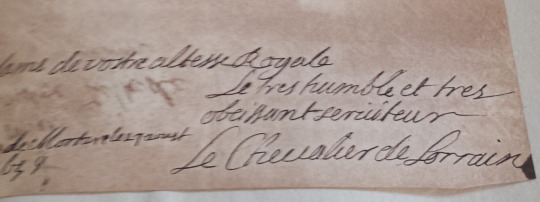 de vostre altesse Royale
Le tres humble et tres
obeissant serviteur
Le Chevalier de Lorrain